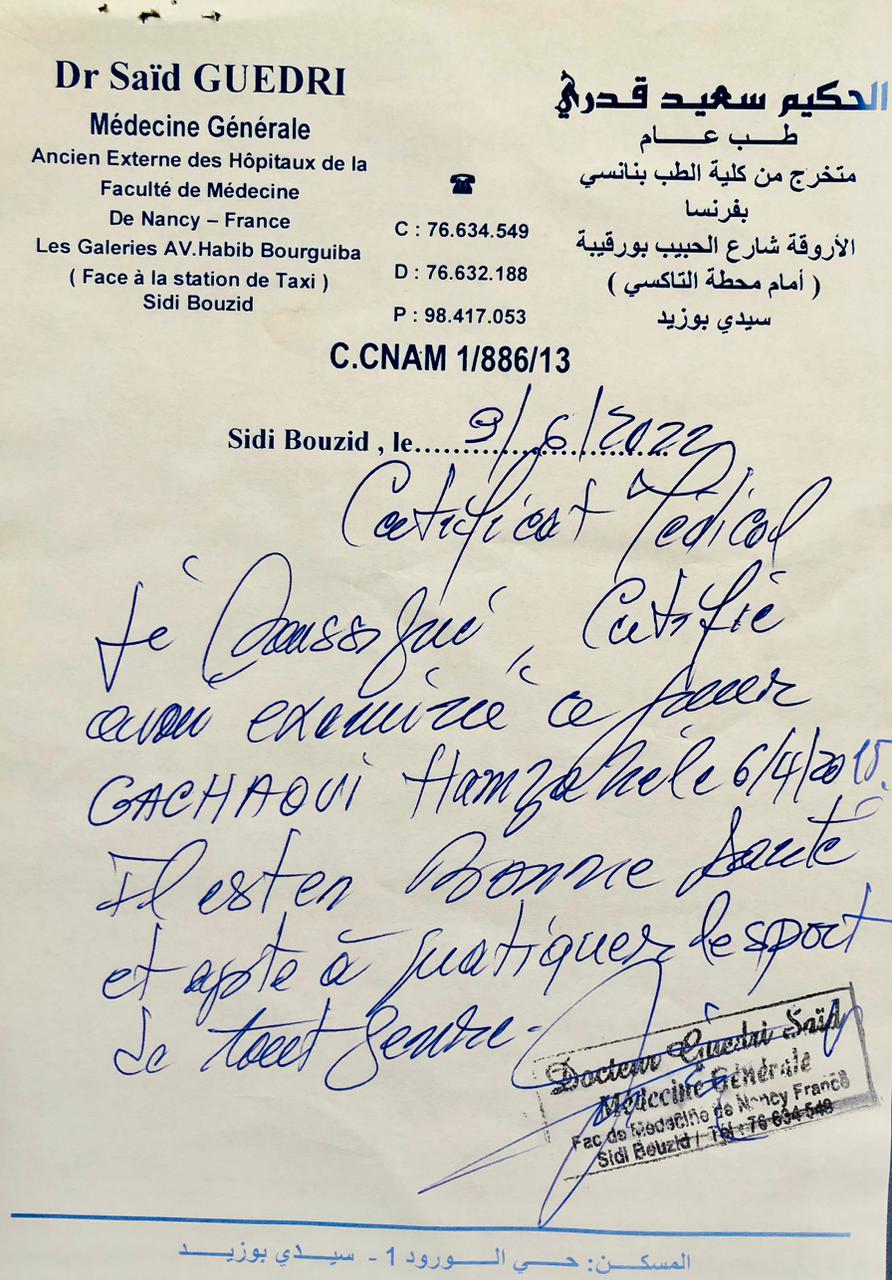 Dr Saïd GUEDRI
Médecine Générale
Ancien Externe des Hôpitaux de la
Faculté de Médecine
De Nancy – France
Les Galeries AV.Habib Bourguiba
( Face à la station de Taxi )
Sidi Bouzid
☎
C : 76.634.549
D : 76.632.188
P : 98.417.053
الحكيم سعيد قدري
طب عام
متخرج من كلية الطب بنانسي
بفرنسا
الأروقة شارع الحبيب بورقيبة
( أمام محطة التاكسي )
سيدي بوزيد
C.CNAM 1/886/13
Sidi Bouzid , le 9/6/2022
Certificat Médical
Je Soussigné, Certifie
avoir examiné ce jour
GACHAOUI Hamza né le 6/4/2015.
Il est en Bonne Santé
et apte à pratiquer le sport
de tout genre.
Docteur Guedri Saïd
Médecine Générale
Fac de Médecine de Nancy France
Sidi Bouzid / Tél : 76 634 549
المسكن: حي الورود 1 - سيدي بوزيد